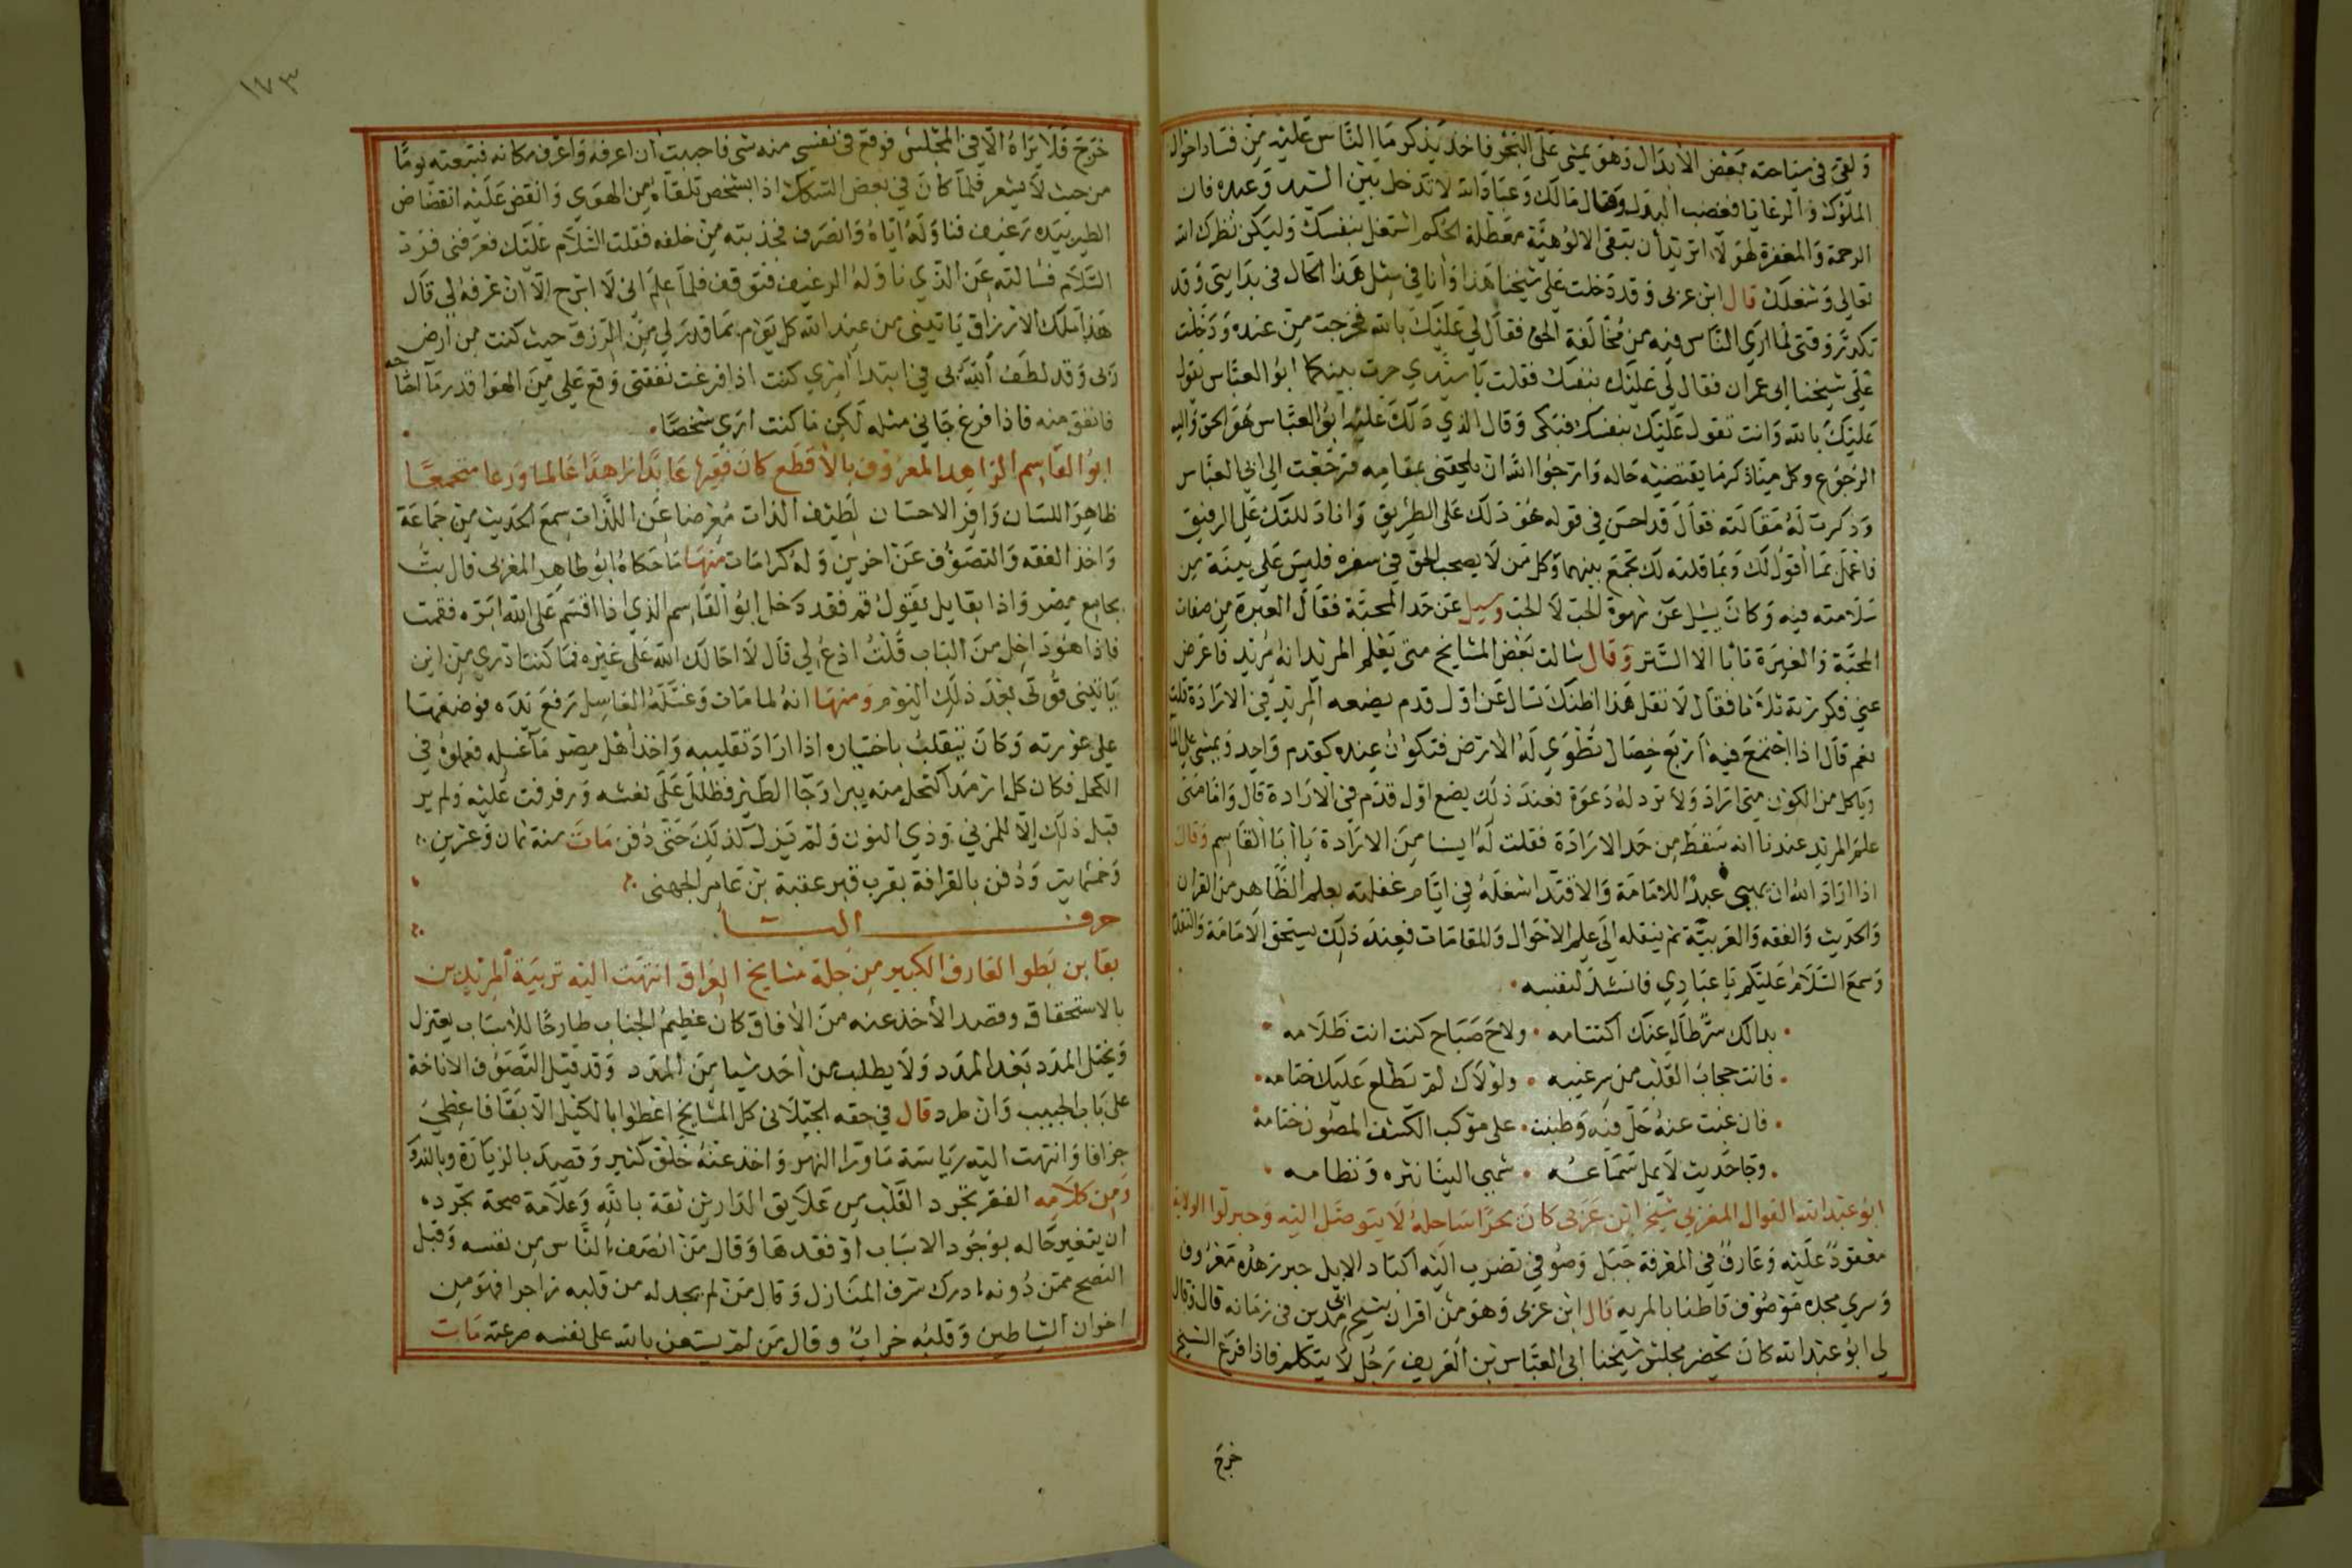 ولقى في سياحته بعض الأبدال وهو يمشي على البحر فاخذ يذكر ما الناس عليه من فساد احوال
الملوك والرعايا فغضب البدل وقال مالك وعباد الله لا تدخل بين السيد وعبده فان
الرحمة والمغفرة لهولاء اتريد أن تبقى الالوهية معطلة الحكم اشتغل بنفسك وليكن نظرك الله
تعالى وشغلك قال ابن عربى وقد دخلت على شيخنا هذا وأنا في مثل هذا الحال فى بدايتى وقد
تكدر وقتى لما ارى الناس فيه من مخالفة الحق فقال لي عليك بالله فخرجت من عنده ودخلت
على شيخنا ابى عمران فقال لي عليك بنفسك فقلت يا سيدي حرت بينكما ابو العباس يقول
عليك بالله وانت تقول عليك بنفسك فبكى وقال الذي دلك عليه ابو العباس هو الحق واليه
الرجوع وكل منا ذكر ما يقتضيه حاله وارجوا الله ان يلحقنى بمقامه فرجعت الى ابي العباس
وذكرت له مقالته فقال قد احسن في قوله هو دلك على الطريق وانا دللتك على الرفيق
فاعمل بما أقول لك وبما قلته لك تجمع بينهما وكل من لا يصحب الحق في سفره فليس على بينة من
سلامته فيه وكان يسيل عن شهوة الحب لا الحب وسيل عن حد المحبة فقال الغيرة من صفات
المحبة والغيرة تابا الا الستر وقال سالت بعض المشايخ متى يعلم المريد انه مريد فاعرض
عني فكررته ثلاثا فقال لا تقل هذا اظنك تسال عن اول قدم يضعه المريد في الارادة قلت
نعم قال اذا اجتمع فيه اربع خصال تطوى له الارض فتكون عنده كقدم واحد ويمشي على الماء
وياكل من الكون متى اراد ولا ترد له دعوة فعند ذلك يضع اول قدم في الارادة قال واما متى
علم المريد عندنا انه سقط من حد الارادة فقلت له ايسنا من الارادة يا أبا القاسم وقال
اذا اراد الله ان يهيئ عبدا للامامة والاقتدا شغله في ايام غفلته بعلم الظاهر من القران
والحديث والفقه والعربية ثم ينقله الى علم الاحوال والمقامات فعند ذلك يستحق الامامة والتقدم
وسمع السلام عليكم يا عبادي فانشد لنفسه
بدا لك سر طال عنك اكتتامه • ولاح صباح كنت انت ظلامه
فانت حجاب القلب من سر غيبه • ولولاك لم يطلع عليك ختامه
فان غبت عنه حل فيه وطنبت • على موكب الكشف المصون ختامه
وجا حديث لا يمل سماعه • شهي الينا نثره ونظامه
ابو عبد الله القوال المغربي شيخ ابن عربى كان بحرا ساحله لا يتوصل اليه وحبر لوا الولاية
معقود عليه وعارف في المعرفة جبل وصوفي تضرب اليه اكباد الابل حبر زهده معروف
وسري مجده موصوف قاطنا بالمريه قال ابن عربى وهو من اقران شيخ ابى مدين فى زمانه قال قال
لي ابو عبد الله كان يحضر مجلس شيخنا ابى العباس بن العريف رجل لا يتكلم فاذا فرغ الشيخ
خرج
١٧٣
خرج فلا يراه الا في المجلس فوقع فى نفسي منه شى فاحببت أن اعرفه واعرف مكانه فتبعته يوما
من حيث لا يشعر فلما كان في بعض السكك اذا بشخص تلقاه من الهوى وانقض عليه انقضاض
الطير بيده رغيف فناوله اياه وانصرف فجذبته من خلفه فقلت السلام عليك فعرفنى فرد
السلام فسالته عن الذي ناوله الرغيف فتوقف فلما علم انى لا ابرح الا ان عرفه لي قال
هذا ملك الارزاق ياتينى من عند الله كل يوم بما قدر لي من الرزق حيث كنت من ارض
ربى وقد لطف الله بى في ابتدا أمري كنت اذا فرغت نفقتى وقع علي من الهوا قدر ما احتاجه
فانفق منه فاذا فرغ جانى مثله لكن ما كنت ارى شخصا
ابو القاسم الزاهد المعروف بالأقطع كان فقيها عابدا زاهدا عالما ورعا متجمعا
ظاهر اللسان وافر الاحسان لطيف الذات معرضا عن اللذات سمع الحديث من جماعة
واخذ الفقه والتصوف عن اخرين وله كرامات منها ما حكاه ابو طاهر المغربى قال بت
بجامع مصر واذا بقايل يقول قم فقد دخل ابو القاسم الذي اذا اقسم على الله ابره فقمت
فاذا هو داخل من الباب قلت ادع لي قال لا احالك الله على غيره فما كنت ادري من اين
ياتينى قوتى بعد ذلك اليوم ومنها انه لما مات وغسله الغاسل رفع يده فوضعها
على عورته وكان ينقلب باختياره اذا اراد تقليبه واخذ أهل مصر ما غسله فعملوه في
الكحل فكان كل ارمد اكتحل منه يبرا وجا الطير فظلل على نعشه ورفرفت عليه ولم ير
قبل ذلك الا للمزني وذي النون ولم يزل كذلك حتى دفن مات سنة ثمان وعشرين
وخمسمايه ودفن بالقرافة بقرب قبر عقبة بن عامر الجهنى
حرف البــا
بقا بن بطو العارف الكبير من جلة مشايخ العراق انتهت اليه تربية المريدين
بالاستحقاق وقصد الأخذ عنه من الأفاق كان عظيم الجناب طارحا للاسباب يعتزل
ويختل المدد بعد المدد ولا يطلب من أحد شيا من المدد وقد قيل التصوف الاناخة
على باب الحبيب وان طرد قال في حقه الجيلانى كل المشايخ اعطوا بالكيل الا بقا فاعطي
جزافا وانتهت اليه رياسة ما ورا النهر واخذ عنه خلق كثير وقصد بالزيارة وبالنذور
ومن كلامه الفقر تجرد القلب من علايق الدارين ثقة بالله وعلامة صحة تجرده
ان يتغير حاله بوجود الاسباب او فقدها وقال من انصف الناس من نفسه وقبل
النصح ممن دونه ادرك شرف المنازل وقال من لم يجد له من قلبه زاجرا فهو من
اخوان الشياطين وقلبه خراب وقال من لم يستعن بالله على نفسه صرعته مات